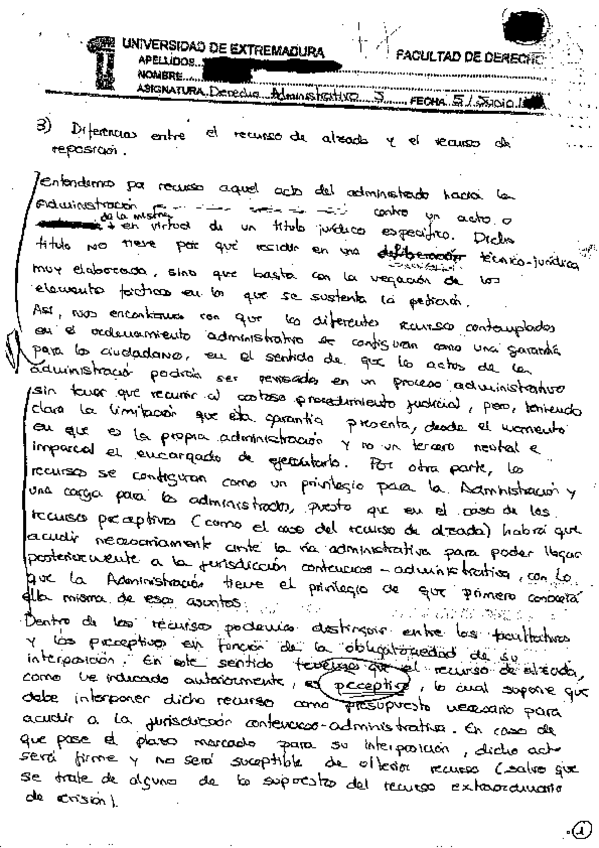 UNIVERSIDAD DE EXTREMADURA
FACULTAD DE DERECHO
APELLIDOS
NOMBRE
ASIGNATURA Derecho Administrativo FECHA 5/Junio/
3) Diferencias entre el recurso de alzada y el recurso de
reposición.
Entendemos por recurso aquel acto del administrado hacia la
Administración contra un acto o
de la misma
en virtud de un título jurídico específico. Dicho
título no tiene por qué residir en una técnico-jurídica
muy elaborada, sino que basta con la negación de los
elementos fácticos en los que se sustenta la petición.
Así, nos encontramos con que los diferentes recursos contemplados
en el ordenamiento administrativo se configuran como una garantía
para los ciudadanos, en el sentido de que los actos de la
administració podrán ser revisados en un proceso administrativo
sin tener que recurrir al costoso procedimiento judicial, pero, teniendo
clara la limitación que esta garantía presenta, desde el momento
en que es la propia administración y no un tercero neutral e
imparcial el encargado de ejecutarlo. Por otra parte, los
recursos se configuran como un privilegio para la Administración y
una carga para los administrados, puesto que en el caso de los
recursos preceptivos (como el caso del recurso de alzada) habrá que
acudir necesariamente ante la vía administrativa para poder llegar
posteriormente a la jurisdicción contencioso-administrativa, con lo
que la Administración tiene el privilegio de que primero conocerá
ella misma de esos asuntos.
Dentro de los recursos podemos distinguir entre los facultativos
y los preceptivos en función de la obligatoriedad de su
interposición. En este sentido tenemos que el recurso de alzada,
como he indicado anteriormente, es preceptivo, lo cual supone que
debe interponer dicho recurso como presupuesto necesario para
acudir a la jurisdicción contencioso-administrativa. En caso de
que pase el plazo marcado para su interposición, dicho acto
será firme y no será suceptible de ulterior recurso (salvo que
se trate de alguno de los supuestos del recurso extraordinario
de revisión).
1